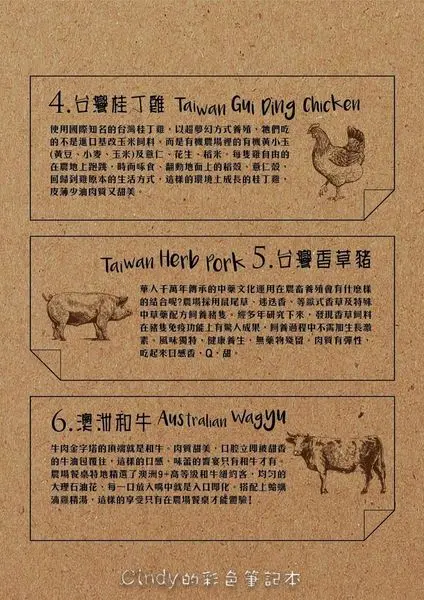 4.台灣桂丁雞 Taiwan Gui Ding Chicken
使用國際知名的台灣桂丁雞，以超夢幻方式養殖，牠們吃
的不是進口基改玉米飼料，而是有機農場裡的有機黃小玉
(黃豆、小麥、玉米)及薏仁、花生、稻米。每隻雞自由的
在農地上跑跳，時而啄食、翻動地面上的稻殼、薏仁殼，
回歸到雞原本的生活方式，這樣的環境上成長的桂丁雞，
皮薄少油肉質又甜美。
Taiwan Herb Pork 5.台灣香草豬
華人千萬年傳承的中藥文化運用在農畜養殖會有什麼樣
的結合呢?農場採用鼠尾草、迷迭香、等歐式香草及特殊
中草藥配方飼養豬隻。經多年研究下來，發現香草飼料
在豬隻免疫功能上有驚人成果，飼養過程中不需加生長激
素。風味獨特、健康養生、無藥物殘留。肉質有彈性，
吃起來口感香、Q、甜。
6.澳洲和牛 Australian Wagyu
牛肉金字塔的頂端就是和牛。肉質甜美，口腔立即被甜香
的牛油包覆住，這樣的口感、味蕾的饗宴只有和牛才有。
農場餐桌特地精選了澳洲9+高等級和牛紐約客，均勻的
大理石油花，每一口放入嘴中就是入口即化。搭配上蛤蠣
滴雞精湯，這樣的享受只有在農場餐桌才能體驗!
Cindy的彩色筆記本